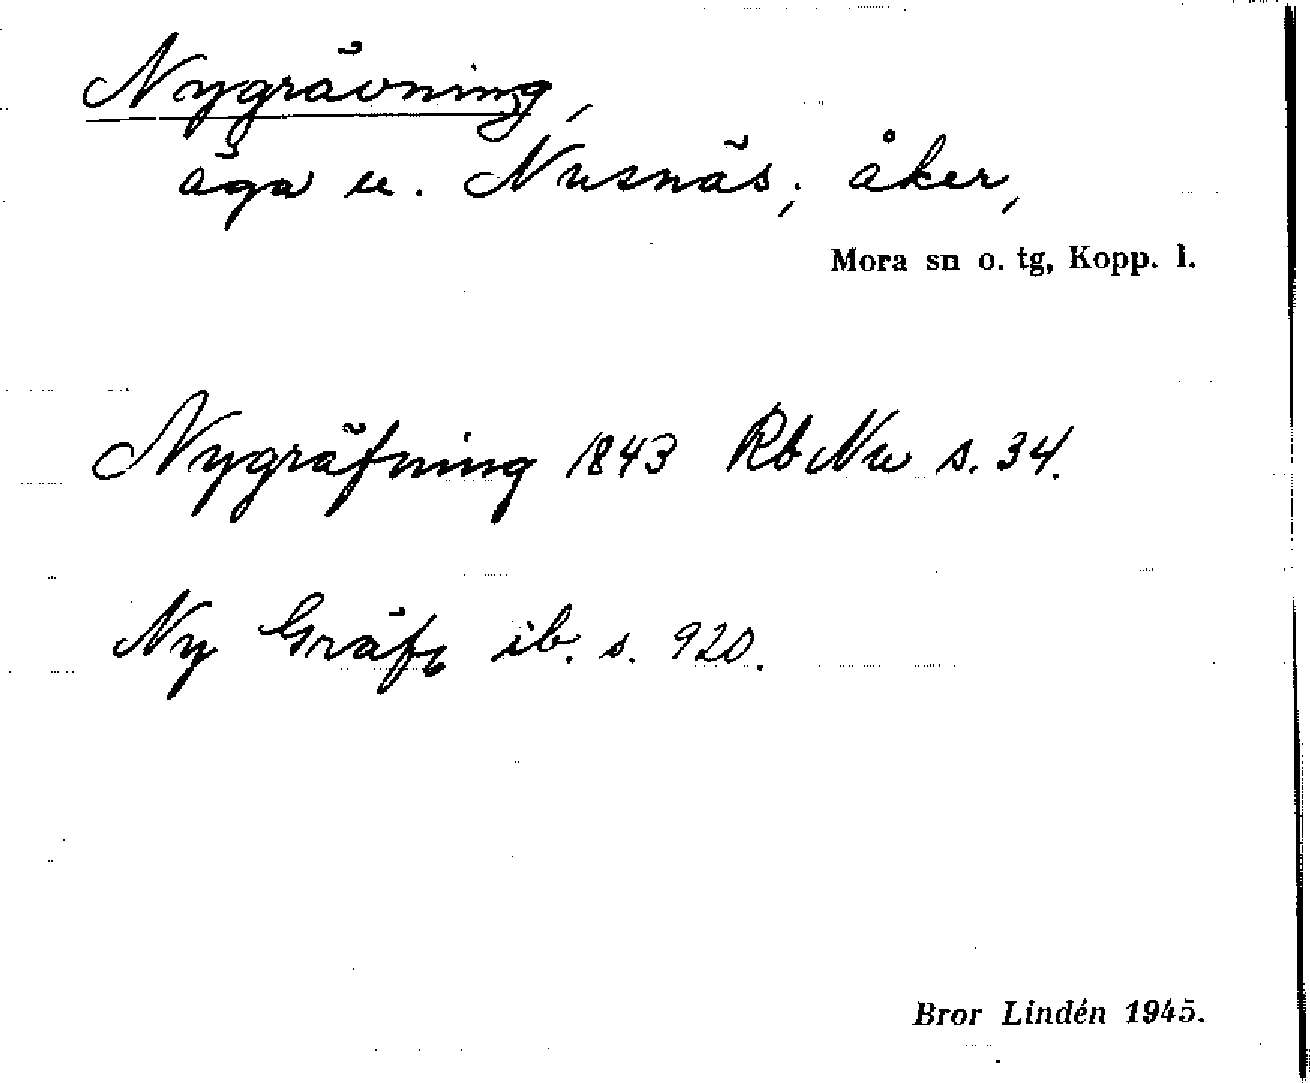 Nygrävning,
äga u. Nusnäs; åker,
Mora sn o. tg, Kopp. l.
Nygräfning 1843 Rb Nu s. 34.
Ny Gräfs ib. s. 920.
Bror Lindén 1945.